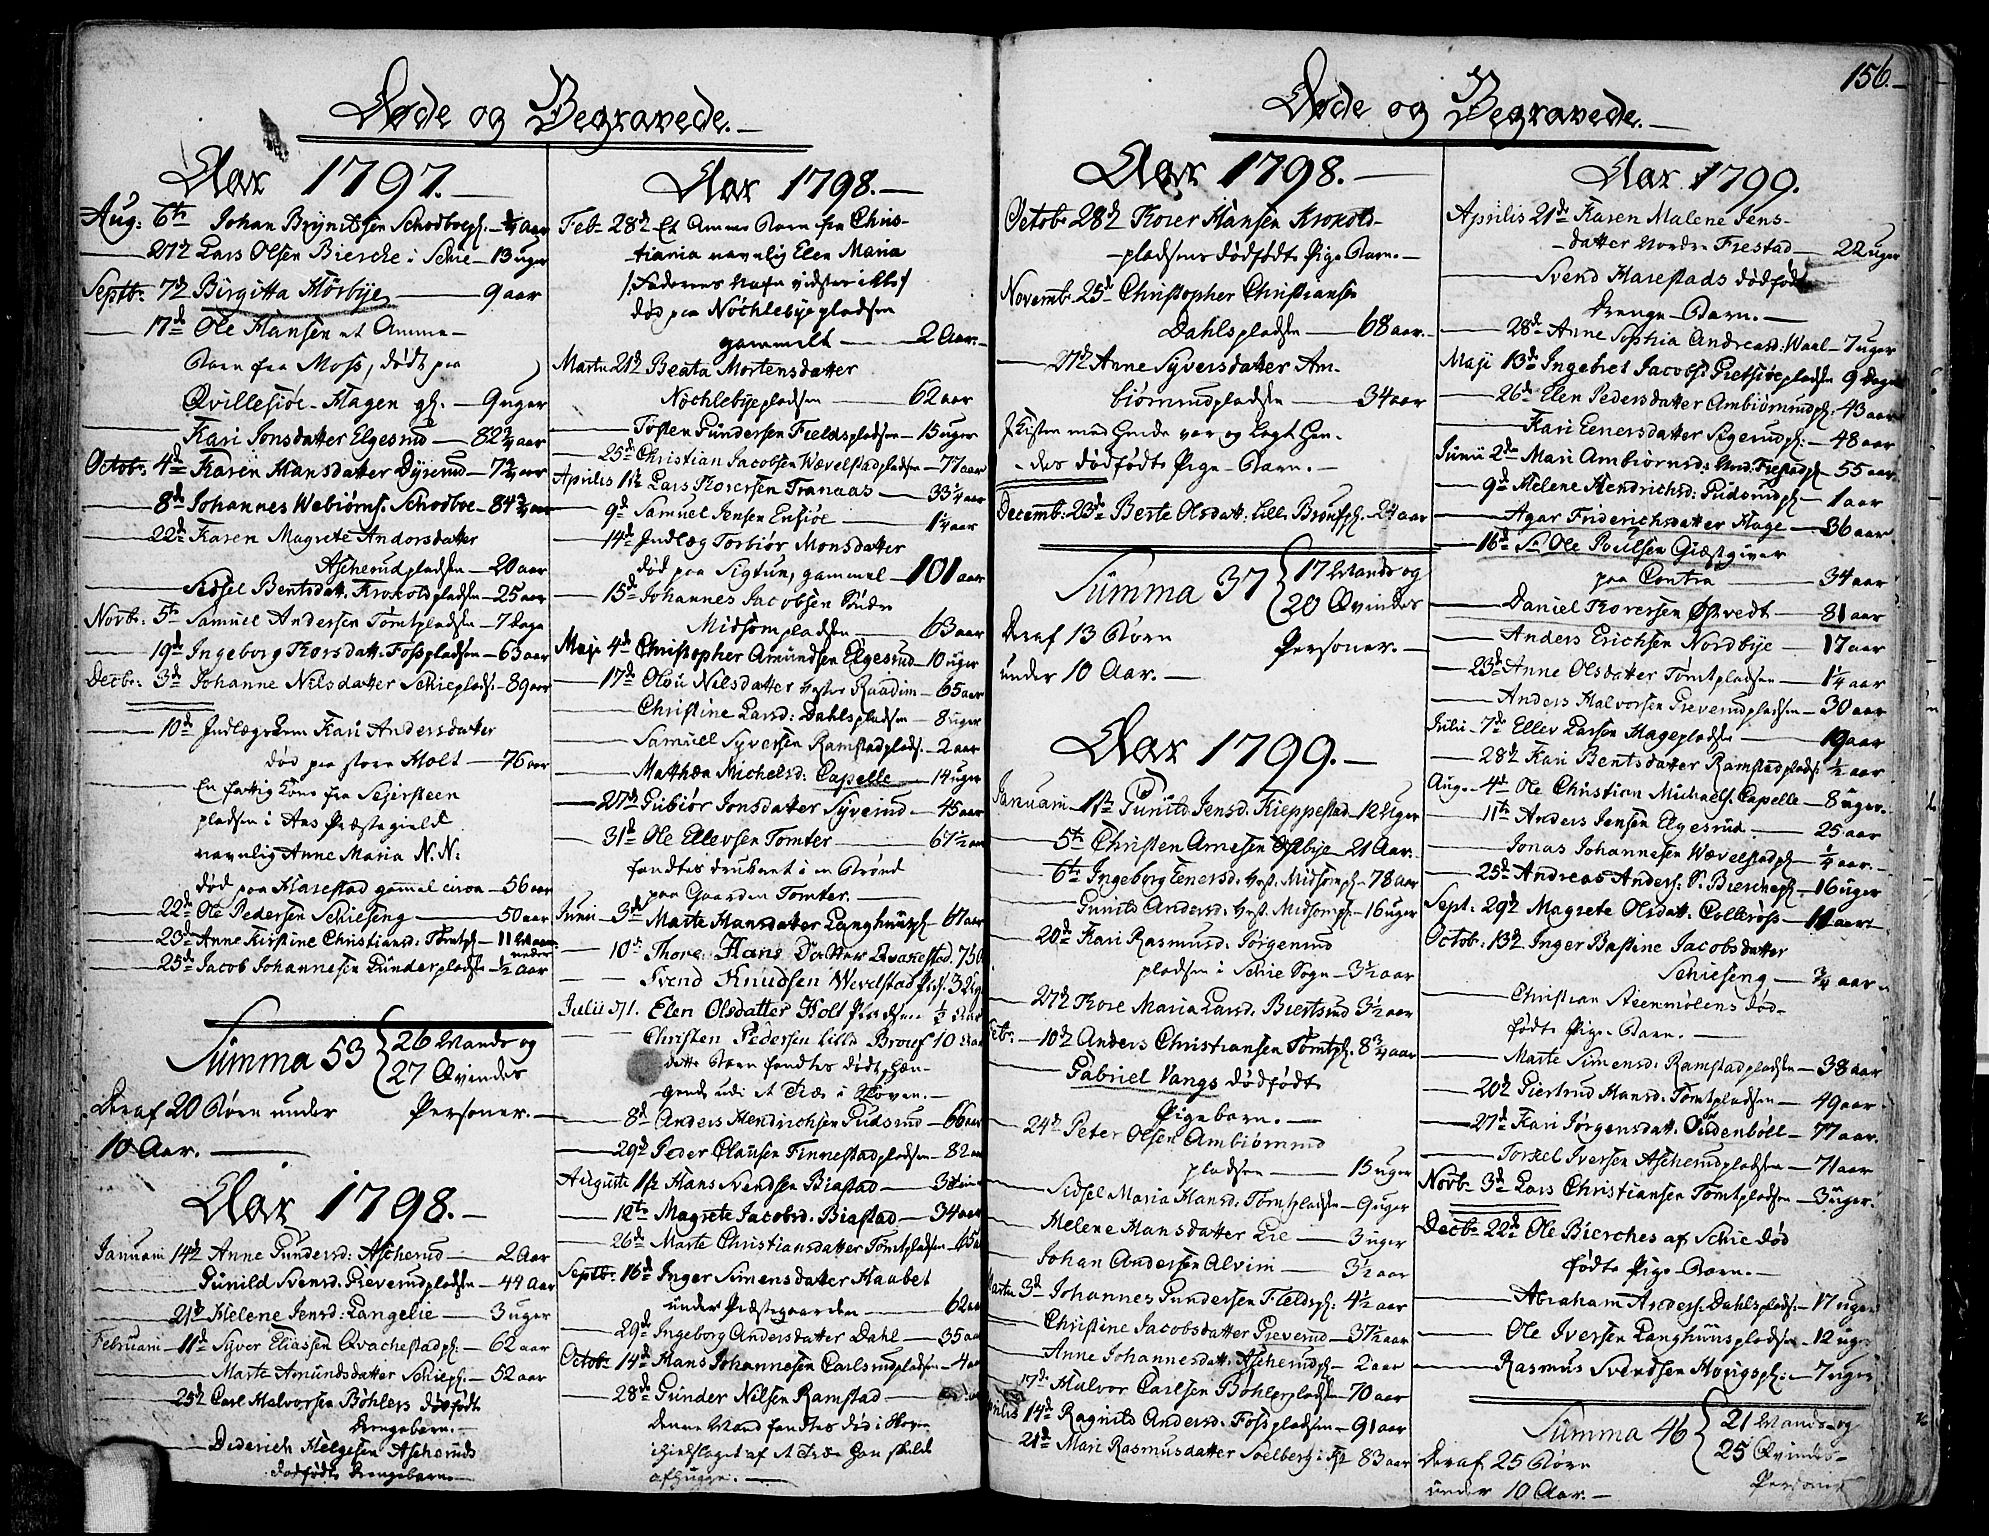 Døde og Begravede.
Aar 1797.
Aug: 6te Johan Brynildsen Schodboepl. ¼ aar
27de Lars Olsen Biercke i Schie 13 uger
Septb: 7de Birgitta Hørbye 9 aar
17de Ole Hansen et Amme-
Barn fra Moss, døde paa
Qvillesiøe-Hagen gl. 9 uger
Kari Jonsdatter Elgesrud 82¾ aar
Octob: 4de Karen Hansdatter Dysrud 7¾ aar
8de Johannes Webiørns: Schodboe 84¾ aar
22de Karen Magrete Andorsdatter
Ascherudpladsen 20 aar
Sidsel Bentsdatt: Krokoldpladsen 25 aar
Novb: 5te Samuel Andersen Tomtpladsen 7 dage
19de Ingeborg Torsdatt: Fosspladsen 63 aar
Decbr: 3de Johanne Nilsdatter Schiepladsen 89 aar
10de Indlægs Kone Kari Andersdatter
død paa store Holt 76 aar
En fattig Kone fra Sejersteen
pladsen i Aas Præstegield
navnlig Anne Maria N.N:
død paa Harestad gamel circa 56 aar
22de Ole Pedersen Schieseng 50 aar
23de Anne Kirstine Christiansd: Tomtpl. 11 Maan:
25de Jacob Johannesen Gunderpladsen ½ aar
Summa 53 { 26 Mands og
27 Qvindes
Deraf 20 Børn under Personer.
10 Aar.
Aar 1798.
Januarii 14de Anne Gundersd: Ascherud 2 Aar
Gunild Svensd: Greverudpladsen 44 Aar
21de Helene Jensd: Langelie 3 uger
Februarii 11te Syver Eliassen Qvachestadpl: 62 aar
Marte Amundsdatter Schiepl. 52 aar
25de Carl Halvorsen Bøhlers dødfødte
Drengebarn.
Diderich Helgesen Ascheruds
dødfødte Drengebarn
Aar 1798.
Feb: 28de Et Amme Barn fra Chris-
tiania navnlig Elen Maria
/: Faderens Nafn vidstes ikke /
død paa Nøchlebyepladsen
gammelt 2 Aar.
Martii 21de Beata Mortensdatter
Nøchlebyepladsen 62 aar
Tosten Gundersen Fieldspladsen 15 uger
25de Christian Jacobsen Wævelstadpladsen 77 aar
Aprilis 1te Lars Torersen Tranaas 33¼ aar
9de Samuel Jensen Ensiøe 1¼ aar
14de Indlæg Torbiør Monsdatter
død paa Sigtun, gammel 101 aar
15de Johannes Jacobsen Søndre
Midsompladsen 63 aar
Maji 4de Christopher Amundsen Elgesrud 10 uger
17de Olou Nilsdatter Raadim 65 aar
Christine Larsd: Dahlspladsen 8 uger
Samuel Syversen Ramstadpladsen 2 aar
Matthea Michelsd: Capelle 14 uger
27de Gubiør Jonsdatter Syverud 45 aar
31de Ole Ellevsen Tomter 67½ aar
fandtes druknet i en Brønd
paa Gaarden Tomter.
Junii 3de Marte Hansdatter Langhuuspl. 67 aar
10de Thore Hans Datter Qvakestad 75
Svend Knudsen Wevelstad Plds. 3
Julii d 1. Elen Olsdatter Holt Pladsen ½ Aar
Christen Pedersen lille Brouf 10 Aar
dette Barn fandtes død hæn-
gende udi et Træ i Skoven.
8de Anders Hendrichsen Gudsrud 66 aar
29de Peder Clausen Finnestadpladsen 82
Auguste 1te Hans Svendsen Biastad
12te Magrete Jacobsd: Biastad 34 aar
26de Marte Christiansdatter Tomtpladsen 65
Septb: 16de Inger Simensdatter Haabet
under Præstegaarden 62
29de Ingeborg Andersdatter Dahl 35 aar
Octob: 14de Hans Johannesen Carlsrudpladsen 4
28de Gunder Nilsen Ramstad
denne Mand fandtes død i Skoven
ihielslaget af et Træ han skulde
afhugge.
156.
Døde og Begravede.
Aar 1798.
Octob: 28de Torer Hansen Krokold-
pladsens dødfødte Pige Barn.
Novemb: 25de Christopher Christiansen
Dahlspladsen 68 aar.
27de Anne Syversdatter Am-
biørnrudpladsen 34 aar
I Kisten med hende var og lagt hen-
des dødfødte Pige-Barn.
Decemb: 23de Berte Olsdatt: lille Broufpl. 2¼ aar
Summa 37 { 17 Mands og
20 Qvindes
Deraf 13 Børn Personer.
under 10 Aar.
Aar 1799.
Januarii 1te Gunild Jensd: Kieppestad 12 Uger
5te Christen Arnesen Østbye 21 Aar.
6te Ingeborg Eenersd: Midsompl. 78 aar
Gunild Andersd: Midsompl. 16 uger
20de Kari Rasmusd: Jørgenrud
pladsen i Schie Sogn 3½ aar
27de Tore Maria Larsd: Biertsud 3½ aar
Febr: 10de Anders Christiansen Tomtpl: 8¾ aar
Gabriel Vangs dødfødte
Pigebarn.
24de Peter Olsen Ambiørnrud
pladsen 15 uger
Sidsel Maria Hansd: Tomtpladsen 9 uger
Helene Hansdatter Lie 3 uger
Johan Andersen Alvim 3½ aar
Martii 3de Johannes Gundersen Fieldspl: 4½ aar
Christine Jacobsdatter Greverud 37½ aar
Anne Johannesdatt: Ascherudpl. 2 aar
17de Halvor Carlsen Bøhlerpladsen 70 aar
Aprilis 14de Ragnild Andersd: Fosspladsen 91 aar
21de Mari Rasmusdatter Soelberg i 83 aar
Aar 1799.
Aprilis 21de Karen Malene Jens-
datter Nordre Frestad 22 uger
Svend Harestads dødfødte
Drenge-Barn.
28de Anne Sophia Andreasd: Waal 7 uger
Maji 13de Ingebret Jacobs: Gietsiøepladsen 9 dage
26de Elen Pedersdatter Ambiørnrudpl: 43 aar
Kari Eenersdatter Sigerudpl: 48 aar
Junii 2de Mari Ambiørnsd: Nord: Frestadpl 55 aar
9de Helene Hendrichsd: Gudsrudpl: 1 aar
Agar Friderichsdatter Hage 36 aar
16de Sr Ole Poulsen Giæstgiver
paa Contra 34 aar
Daniel Torersen Østvedt 81 aar
Anders Erichsen Nordbye 17 aar
23de Anne Olsdatter Tomtpladsen 1¼ aar
Anders Halvorsen Greverudpladsen 30 aar
Julii 7de Ellev Larsen Hagepladsen 19 aar
28de Kari Bentsdatter Ramstadpladsen ½ aar
Aug: 4de Ole Christian Michaels: Capelle 8 uger
11te Anders Jensen Elgesrud 25 aar
Jonas Johannesen Wævelstadpl. ¼ aar
25de Andreas Anders: S. Bierchepl 16 uger
Sept: 29de Magrete Olsdatt: Collerøss 11 aar
Octob: 13de Inger Bastine Jacobsdatter
Schieseng ¾ aar
Christian Steenmølens død-
fødte Pige-Barn.
Marte Simensd: Ramstadpladsen 38 aar
20de Giertrud Hansd: Tomtpladsen 49 aar
27de Kari Jørgensdatt: Oudenbøll 77 aar.
Torkel Iversen Ascherudpladsen 71 aar
Novb: 3de Lars Christiansen Tomtpladsen 3 uger
Decb: 22de Ole Bierches af Schie død
fødte Pige-Barn.
Abraham Anders: Dahlspladsen 17 uger
Ole Iversen Langhuuspladsen 12 uger
Rasmus Svendsen Haugspl: 7 uger
Summa 46 { 21 Mands og
25 Qvindes
Deraf 25 Børn Personer
under 10 Aar.